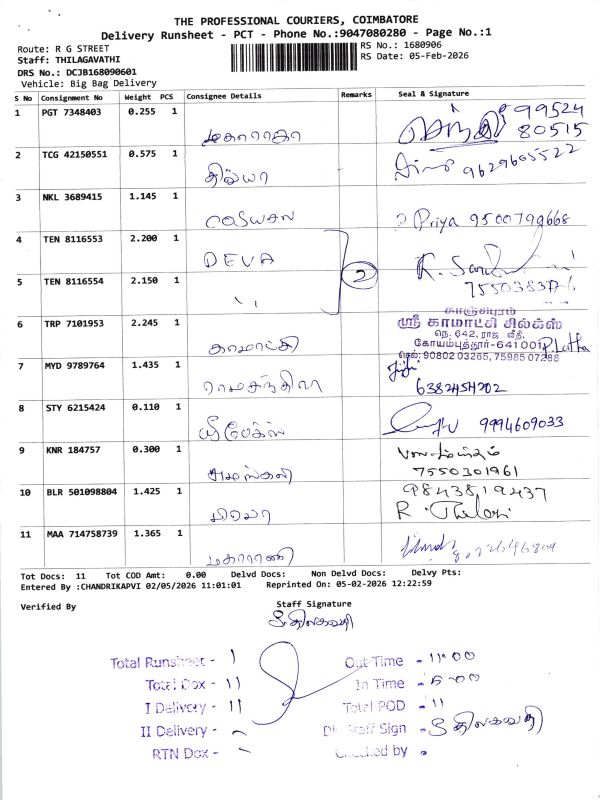 THE PROFESSIONAL COURIERS, COIMBATORE
Delivery Runsheet - PCT - Phone No.:9047080280 - Page No.:1
Route: R G STREET
Staff: THILAGAVATHI
DRS No.: DCJB168090601
Vehicle: Big Bag Delivery
RS No.: 1680906
RS Date: 05-Feb-2026
S No Consignment No Weight PCS Consignee Details Remarks Seal & Signature
1 PGT 7348403 0.255 1 மகாராஜா 99524 80515
2 TCG 42150551 0.575 1 திவ்யா 9629605522
3 NKL 3689415 1.145 1 Priya 9500799668
4 TEN 8116553 2.200 1 DEVA
2
5 TEN 8116554 2.150 1 "
6 TRP 7101953 2.245 1 காமாட்சி
காஞ்சிபுரம்
ஸ்ரீ காமாட்சி சில்க்ஸ்
நெ. 642, ராஜ வீதி,
கோயம்புத்தூர்-641001 P. Latha
செல்: 90802 03265, 75985 07286
7 MYD 9789764 1.435 1 6382454202
8 STY 6215424 0.110 1 9994609033
9 KNR 184757 0.300 1 7550301961
10 BLR 501098804 1.425 1 9843819437
11 MAA 714758739 1.365 1 மகாராணி
Tot Docs: 11 Tot COD Amt: 0.00 Delvd Docs: Non Delvd Docs: Delvy Pts:
Entered By :CHANDRIKAPVI 02/05/2026 11:01:01 Reprinted On: 05-02-2026 12:22:59
Verified By
Staff Signature
திலகவதி
Total Runsheet - 1
Total Dox - 11
I Delivery - 11
II Delivery -
RTN Dox -
Out Time - 11.00
In Time - 5.00
Total POD - 11
Staff Sign - திலகவதி
Checked by -